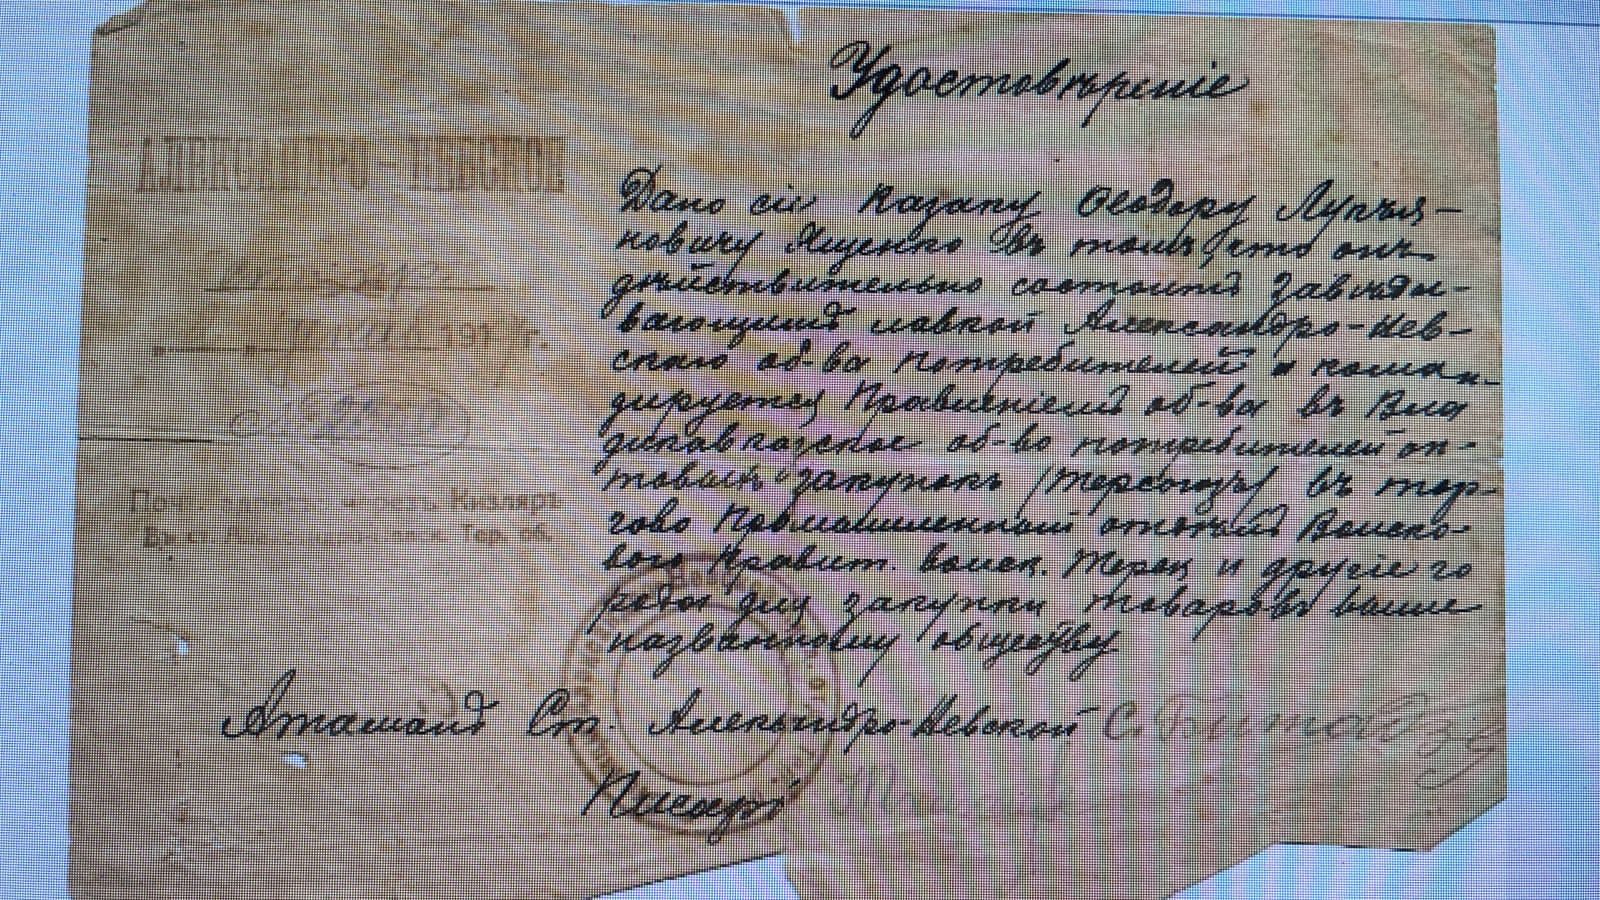 Удостовѣреніе
АЛЕКСАНДРО-НЕВСКОЕ
191 г.
Кизляръ
Тер. об.
Дано сіе казаку Ѳеодору Лукья-
новичу Яценко въ томъ, что онъ
дѣйствительно состоитъ Завѣды-
вающимъ лавкой Александро-Нев-
скаго об-ва потребителей и коман-
дируется Правленіемъ об-ва въ Вла
дикавказское об-во потребителей оп-
товыхъ закупокъ (терсоюзъ) въ тор-
гово промышленный отдѣлъ Войско-
вого Правит. войск. Терец и другіе го
рода для закупки товаровъ выше
названному обществу.
Атаманъ Ст. Александро-Невской
Писарь